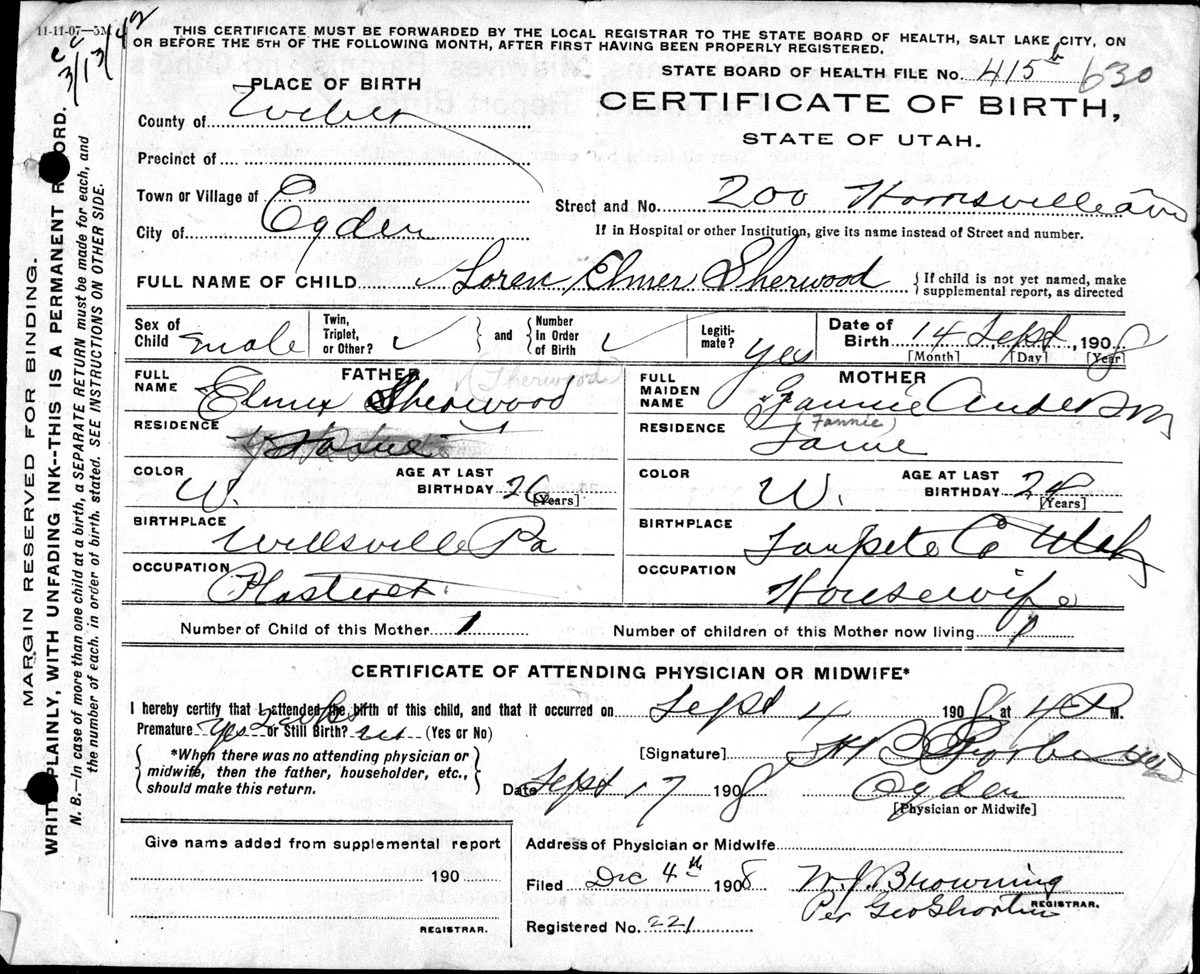 11-11-07—5M
cc
3/13/42
THIS CERTIFICATE MUST BE FORWARDED BY THE LOCAL REGISTRAR TO THE STATE BOARD OF HEALTH, SALT LAKE CITY, ON
OR BEFORE THE 5TH OF THE FOLLOWING MONTH, AFTER FIRST HAVING BEEN PROPERLY REGISTERED.
STATE BOARD OF HEALTH FILE No. 415 b 630
PLACE OF BIRTH
CERTIFICATE OF BIRTH,
STATE OF UTAH.
County of Weber
Precinct of
Town or Village of
Street and No. 200
City of Ogden
If in Hospital or other Institution, give its name instead of Street and number.
FULL NAME OF CHILD Loren Elmer Sherwood
{If child is not yet named, make
supplemental report, as directed
Sex of
Child male
Twin,
Triplet,
or Other? ✓
} and {
Number
In Order
of Birth ✓
Legiti-
mate? yes
Date of
Birth 14 Sept, 1908
[Month] [Day] [Year]
FATHER
FULL
NAME Elmer Sherwood
(Sherwood)
RESIDENCE Same
COLOR W.
AGE AT LAST
BIRTHDAY 26
[Years]
BIRTHPLACE Willsville Pa
OCCUPATION Plasterer
MOTHER
FULL
MAIDEN
NAME Fannie Anderson
(Fannie)
RESIDENCE Same
COLOR W.
AGE AT LAST
BIRTHDAY
[Years]
BIRTHPLACE Sanpete Co Utah
OCCUPATION Housewife
Number of Child of this Mother 1
Number of children of this Mother now living 1
CERTIFICATE OF ATTENDING PHYSICIAN OR MIDWIFE*
I hereby certify that I attended the birth of this child, and that it occurred on Sept 4 1908, at 4 P. M.
Premature yes or Still Birth? (Yes or No)
{*When there was no attending physician or
midwife, then the father, householder, etc.,
should make this return.}
[Signature] H B
Date Sept 17 1908
Ogden
[Physician or Midwife]
Give name added from supplemental report
190
REGISTRAR.
Address of Physician or Midwife
Filed Dec 4th 1908
W. J. Browning
REGISTRAR.
Per Geo Shorten
Registered No. 221
MARGIN RESERVED FOR BINDING.
WRITE PLAINLY, WITH UNFADING INK--THIS IS A PERMANENT RECORD.
N. B.—In case of more than one child at a birth, a SEPARATE RETURN must be made for each, and
the number of each. in order of birth. stated. SEE INSTRUCTIONS ON OTHER SIDE.